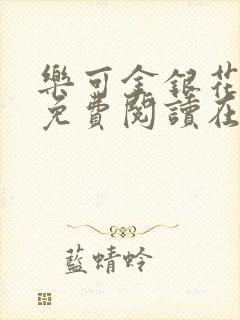 樂可金銀花
免費閱讀在
藍蜻蛉